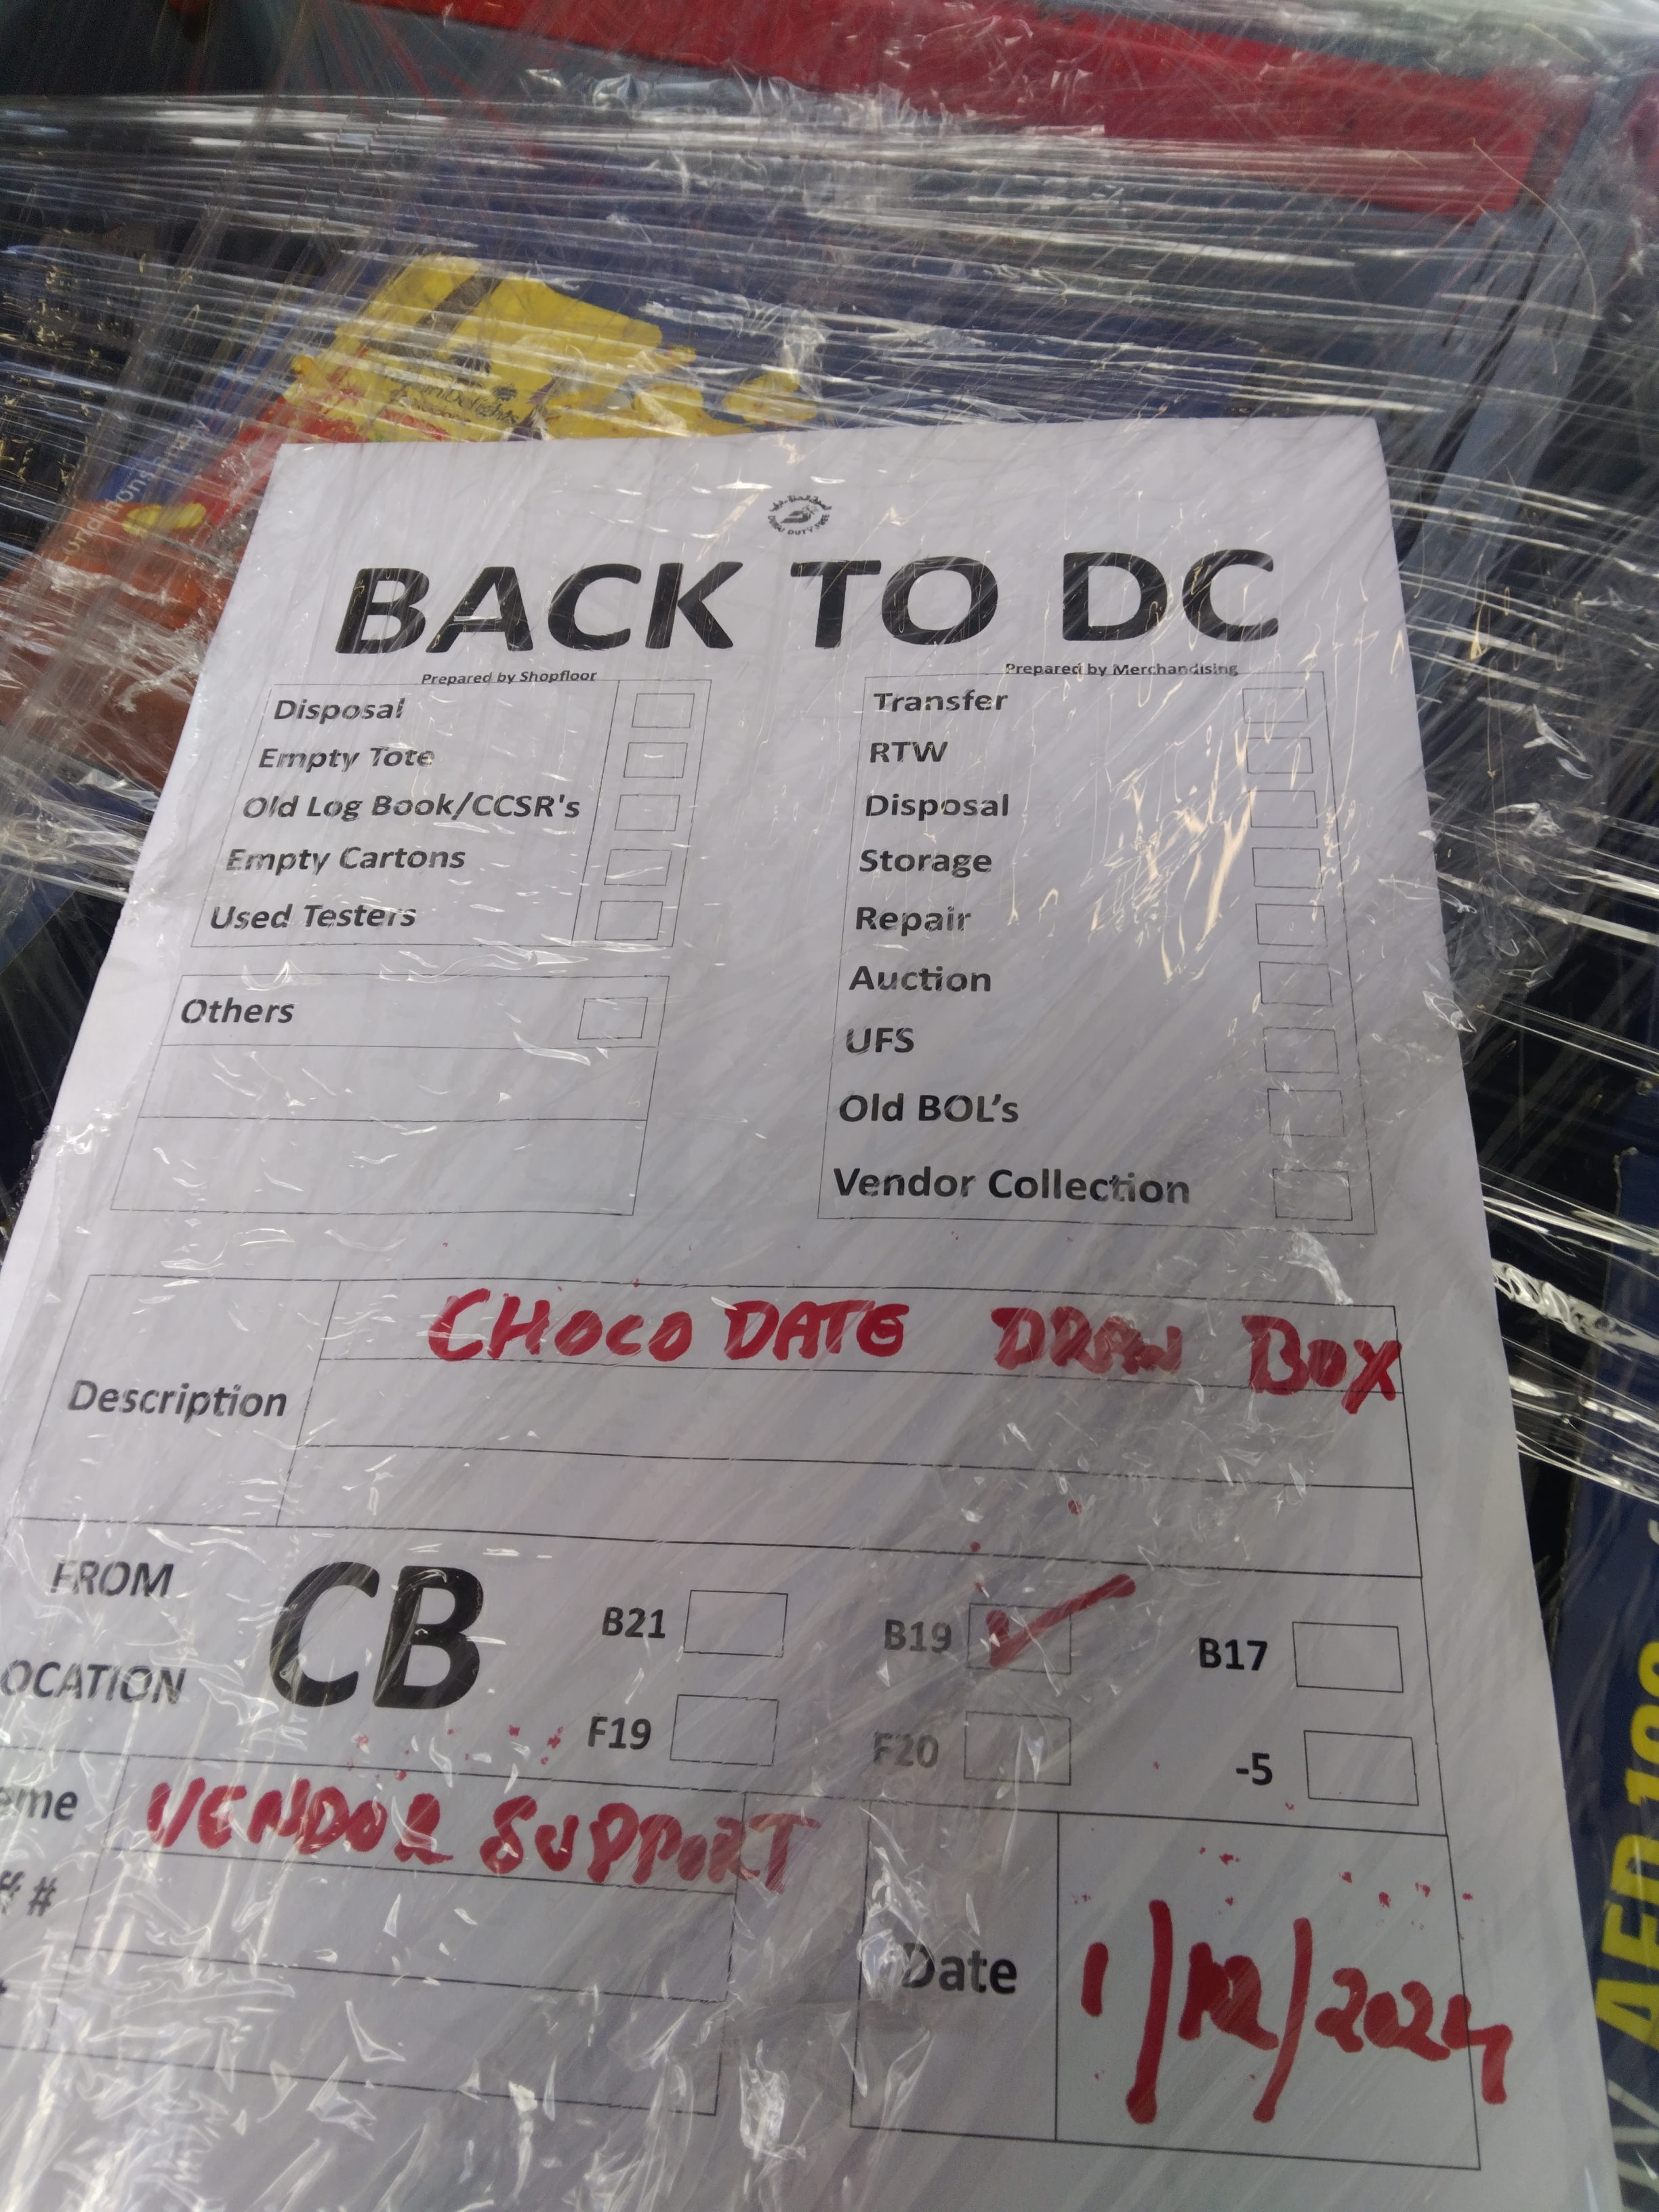 DUBAI DUTY FREE
BACK TO DC
Prepared by Shopfloor
Disposal
Empty Tote
Old Log Book/CCSR's
Empty Cartons
Used Testers
Others
Prepared by Merchandising
Transfer
RTW
Disposal
Storage
Repair
Auction
UFS
Old BOL’s
Vendor Collection
Description
CHOCO DATE DRAW BOX
FROM
OCATION
CB
B21
B19
B17
F19
F20
-5
eme
VENDOR SUPPORT
ff #
Date
1/12/2024
AED 100